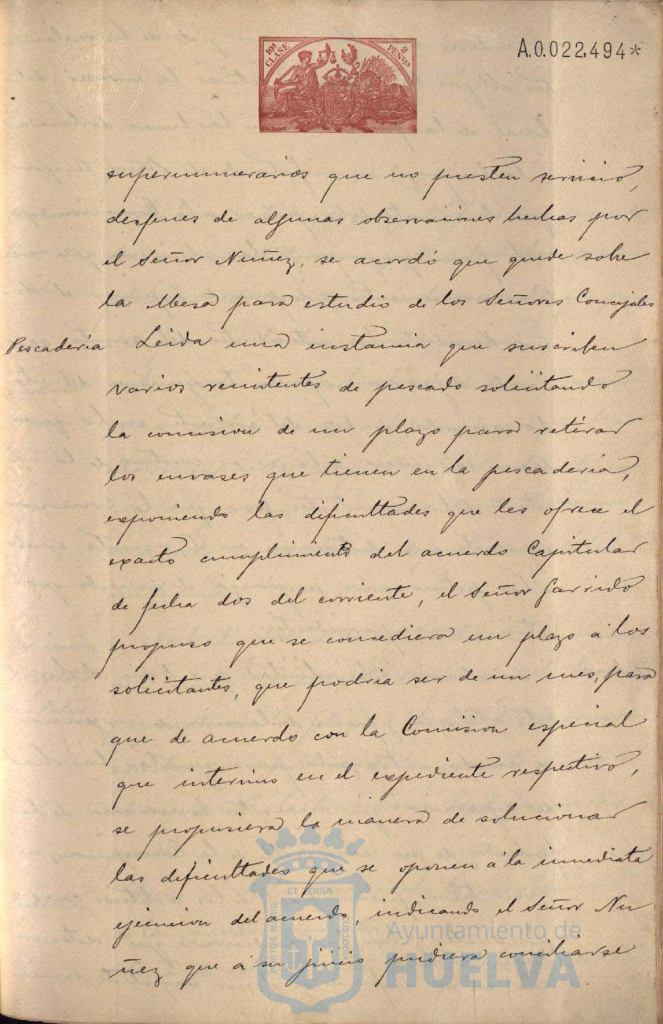 10ª CLASE
2 PESETAS
A.0.022,494*
supernumerarios que no presten servicio,
despues de algunas observaciones hechas por
el Señor Nuñez, se acordó que quede sobre
la Mesa para estudio de los Señores Concejales
Pescadería
Leida una instancia que suscriben
varios remitentes de pescado solicitando
la concision de un plazo para retirar
los envases que tienen en la pescaderia,
exponiendo las dificulttades que les ofrece el
exacto cumplimiento del acuerdo Capitular
de fecha dos del corriente, el Señor Garrido
propuso que se concediera un plazo á los
solicitantes, que podria ser de un mes, para
que de acuerdo con la Comision especial
que intervino en el expediente respectivo,
se propusiera la manera de solucionar
las dificulttades que se oponen á la inmediata
ejecucion del acuerdo, indicando el Señor Nu
ñez que á su juicio pudiera conciliarse
Ayuntamiento de
HUELVA